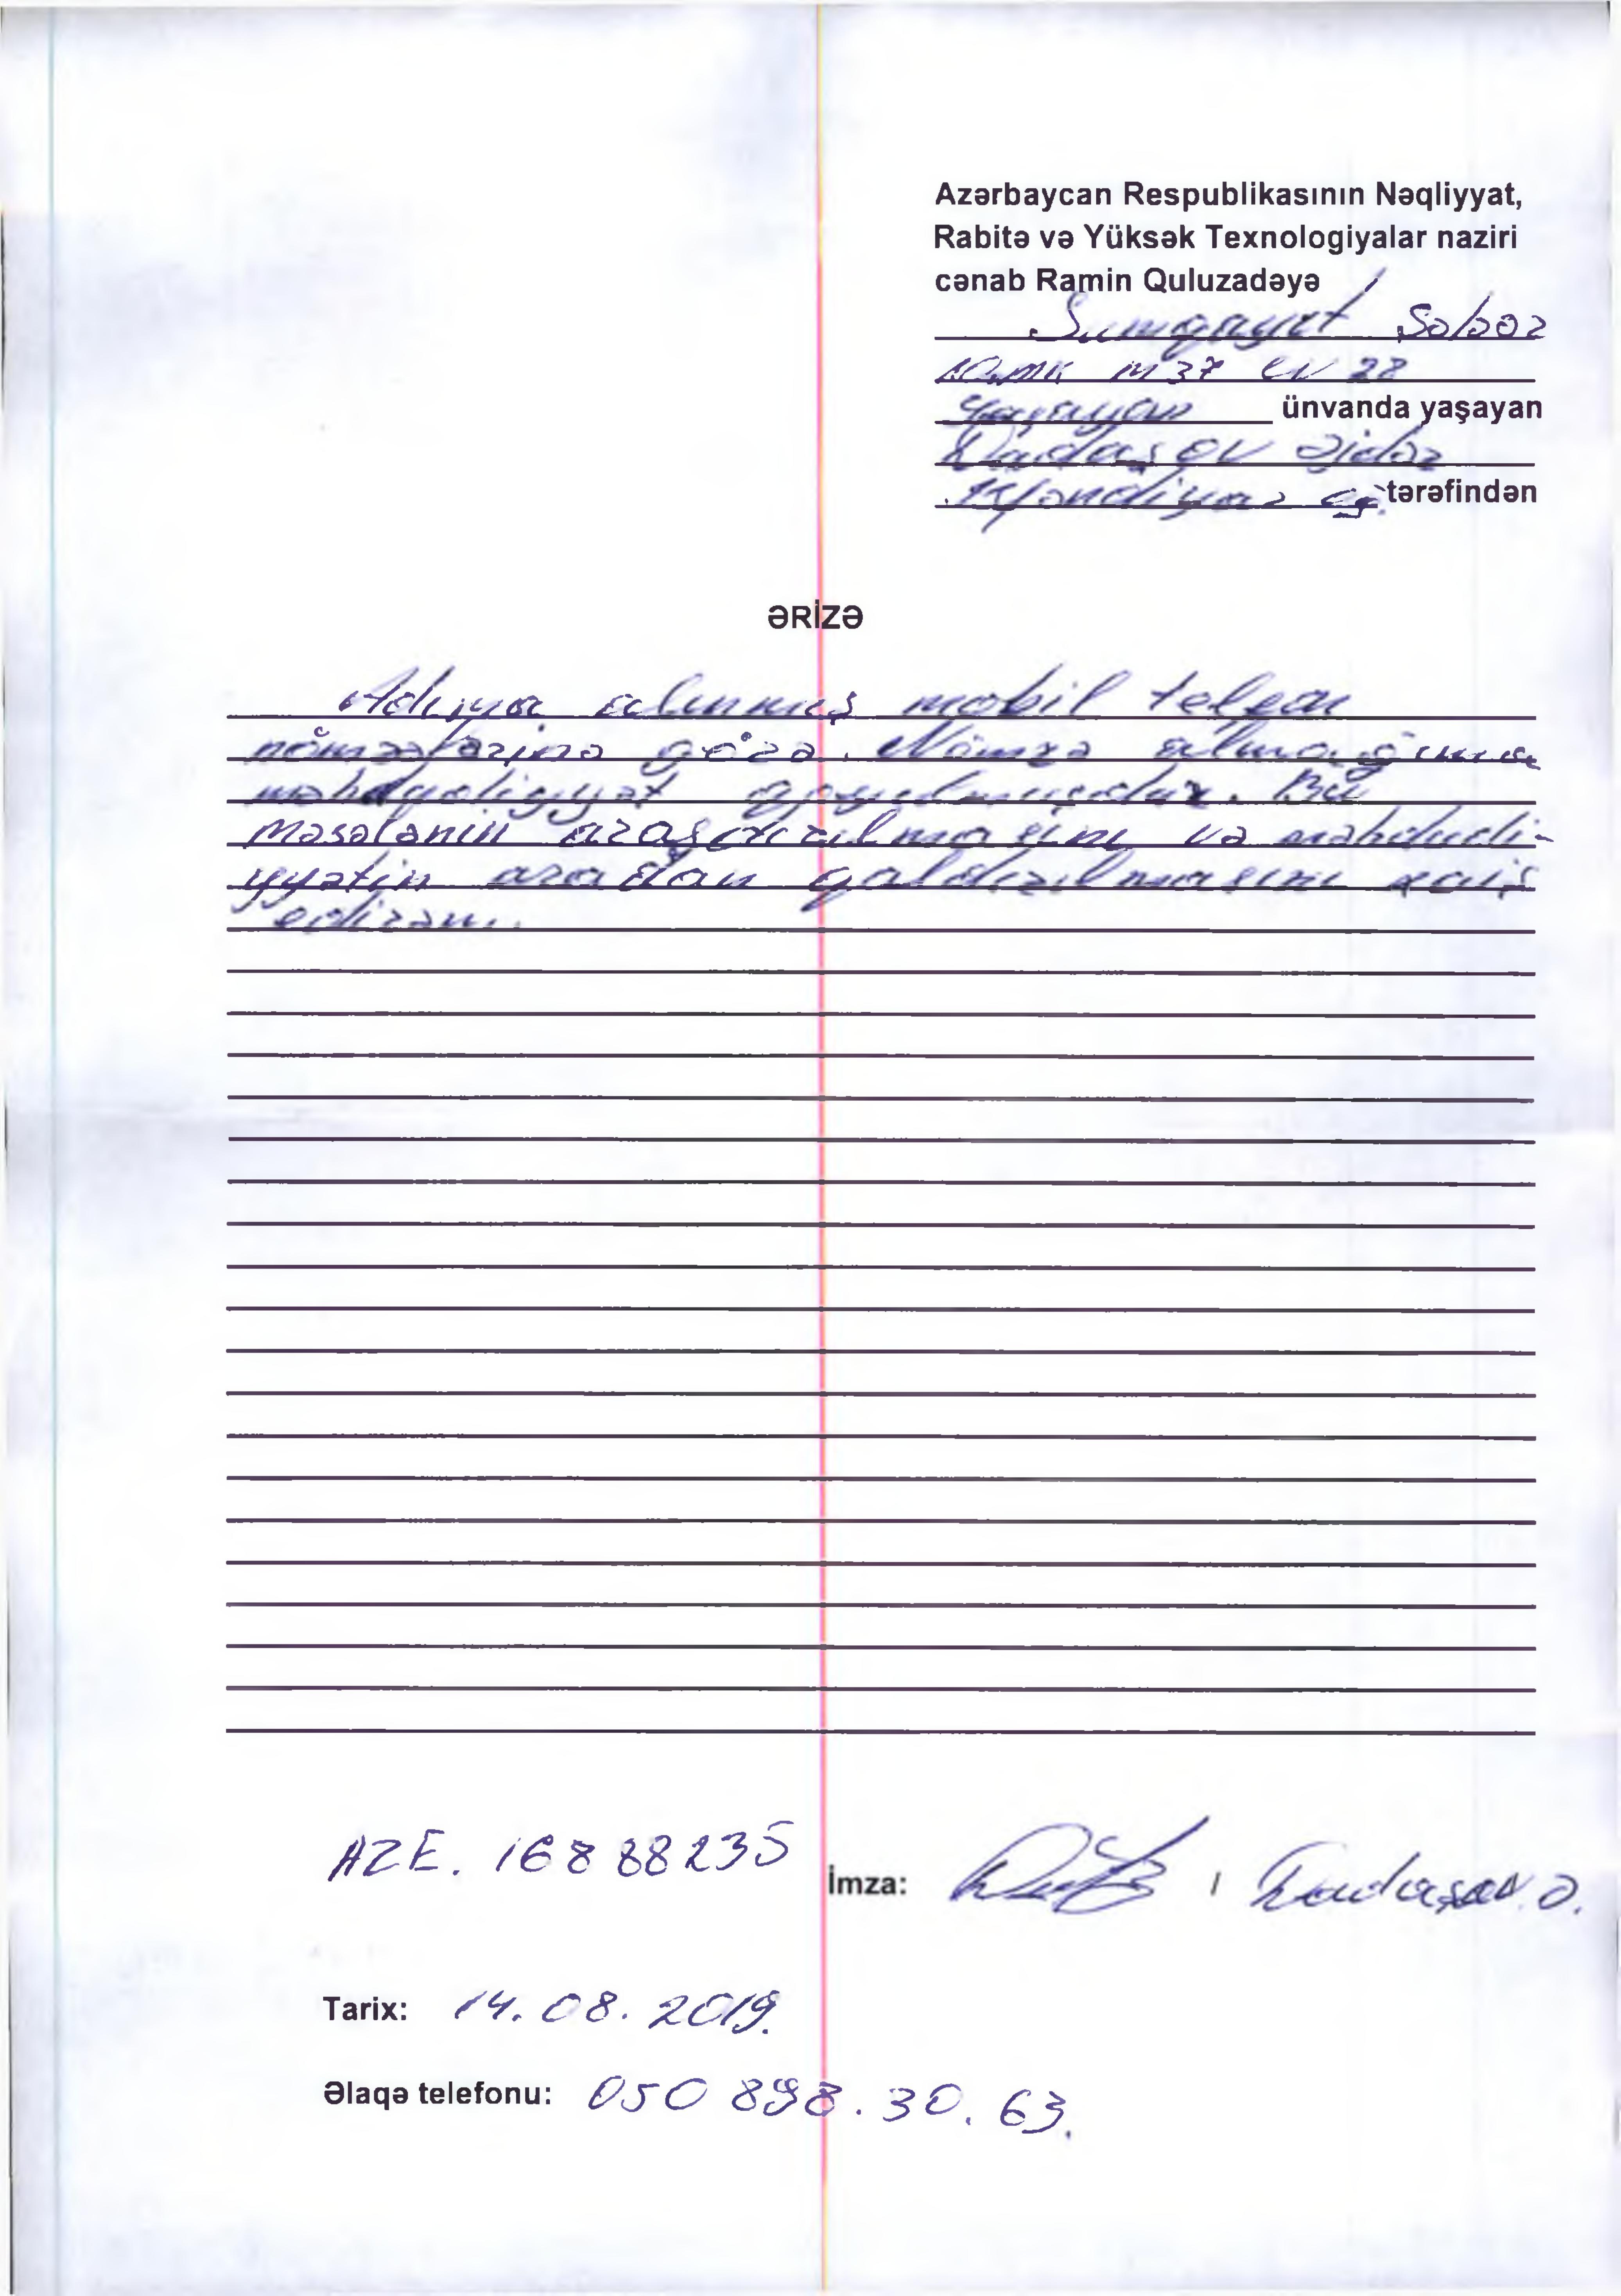 Azərbaycan Respublikasının Nəqliyyat,
Rabitə və Yüksək Texnologiyalar naziri
cənab Ramin Quluzadəyə
Sumqayıt şəhər
m 37 ev 22
yaşayan ünvanda yaşayan
Dadaşov Əjdər
tərəfindən
ƏRİZƏ
Adıma alınmış mobil
nömrələrinə görə. Nömrə almağıma
qoyulmuşdur. Bu
məsələnin araşdırılmasını və məhdudi-
yyətin aradan qaldırılmasını xaiş
edirəm.
AZE. 16888235
İmza: / Dadaşov Ə.
Tarix: 14.08.2019.
Əlaqə telefonu: 050 898.30.63.